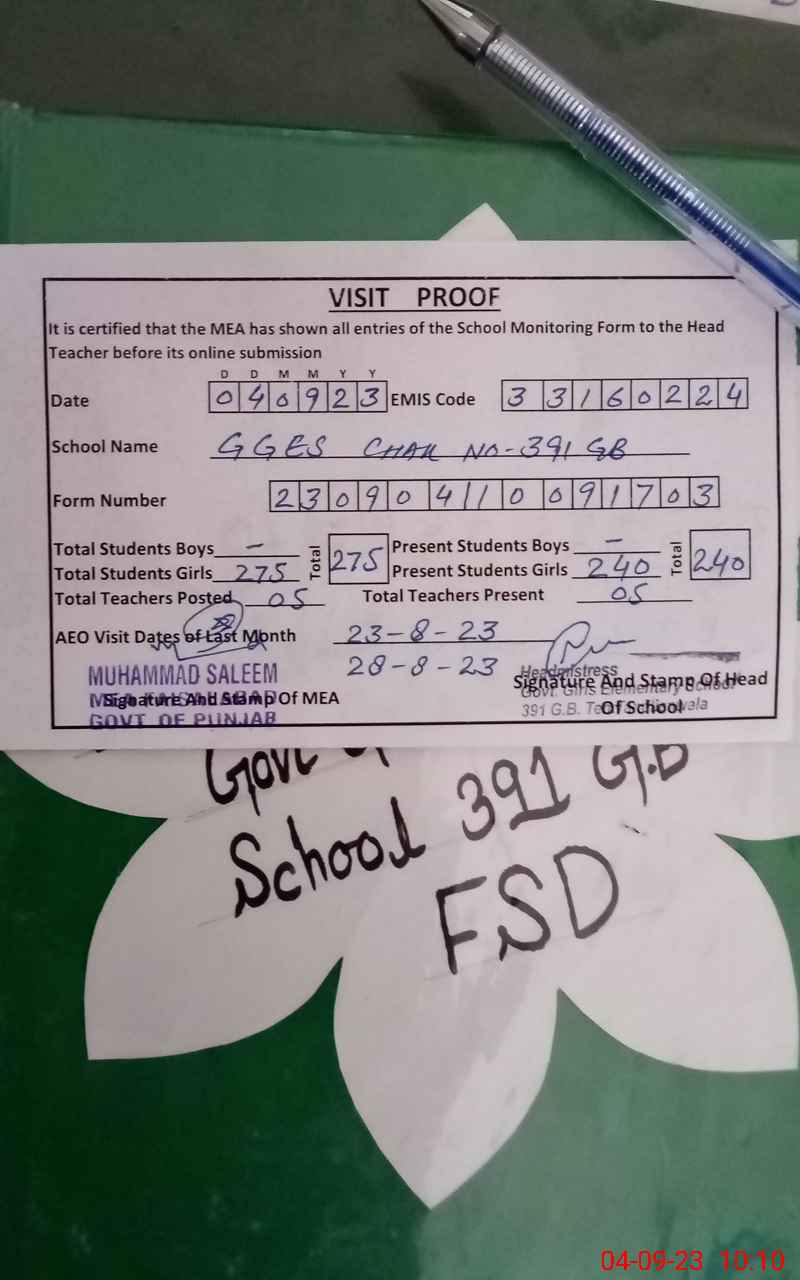 VISIT PROOF
It is certified that the MEA has shown all entries of the School Monitoring Form to the Head
Teacher before its online submission
D D M M Y Y
Date 040923 EMIS Code 33160224
School Name GGES CHAK NO-391 GB
Form Number 23090411009 1703
Total Students Boys - Total 275 Present Students Boys - Total 240
Total Students Girls 275 Present Students Girls 240
Total Teachers Posted 05 Total Teachers Present 05
AEO Visit Dates of Last Month 23-8-23
28-8-23
MUHAMMAD SALEEM
MEA FAISALABAD
GOVT OF PUNJAB
Signature And Stamp Of MEA
Headmistress
Govt. Girls Elementary School
391 G.B.
Signature And Stamp Of Head
Of School
Govt
School 391 G.B
FSD
04-09-23 10:10